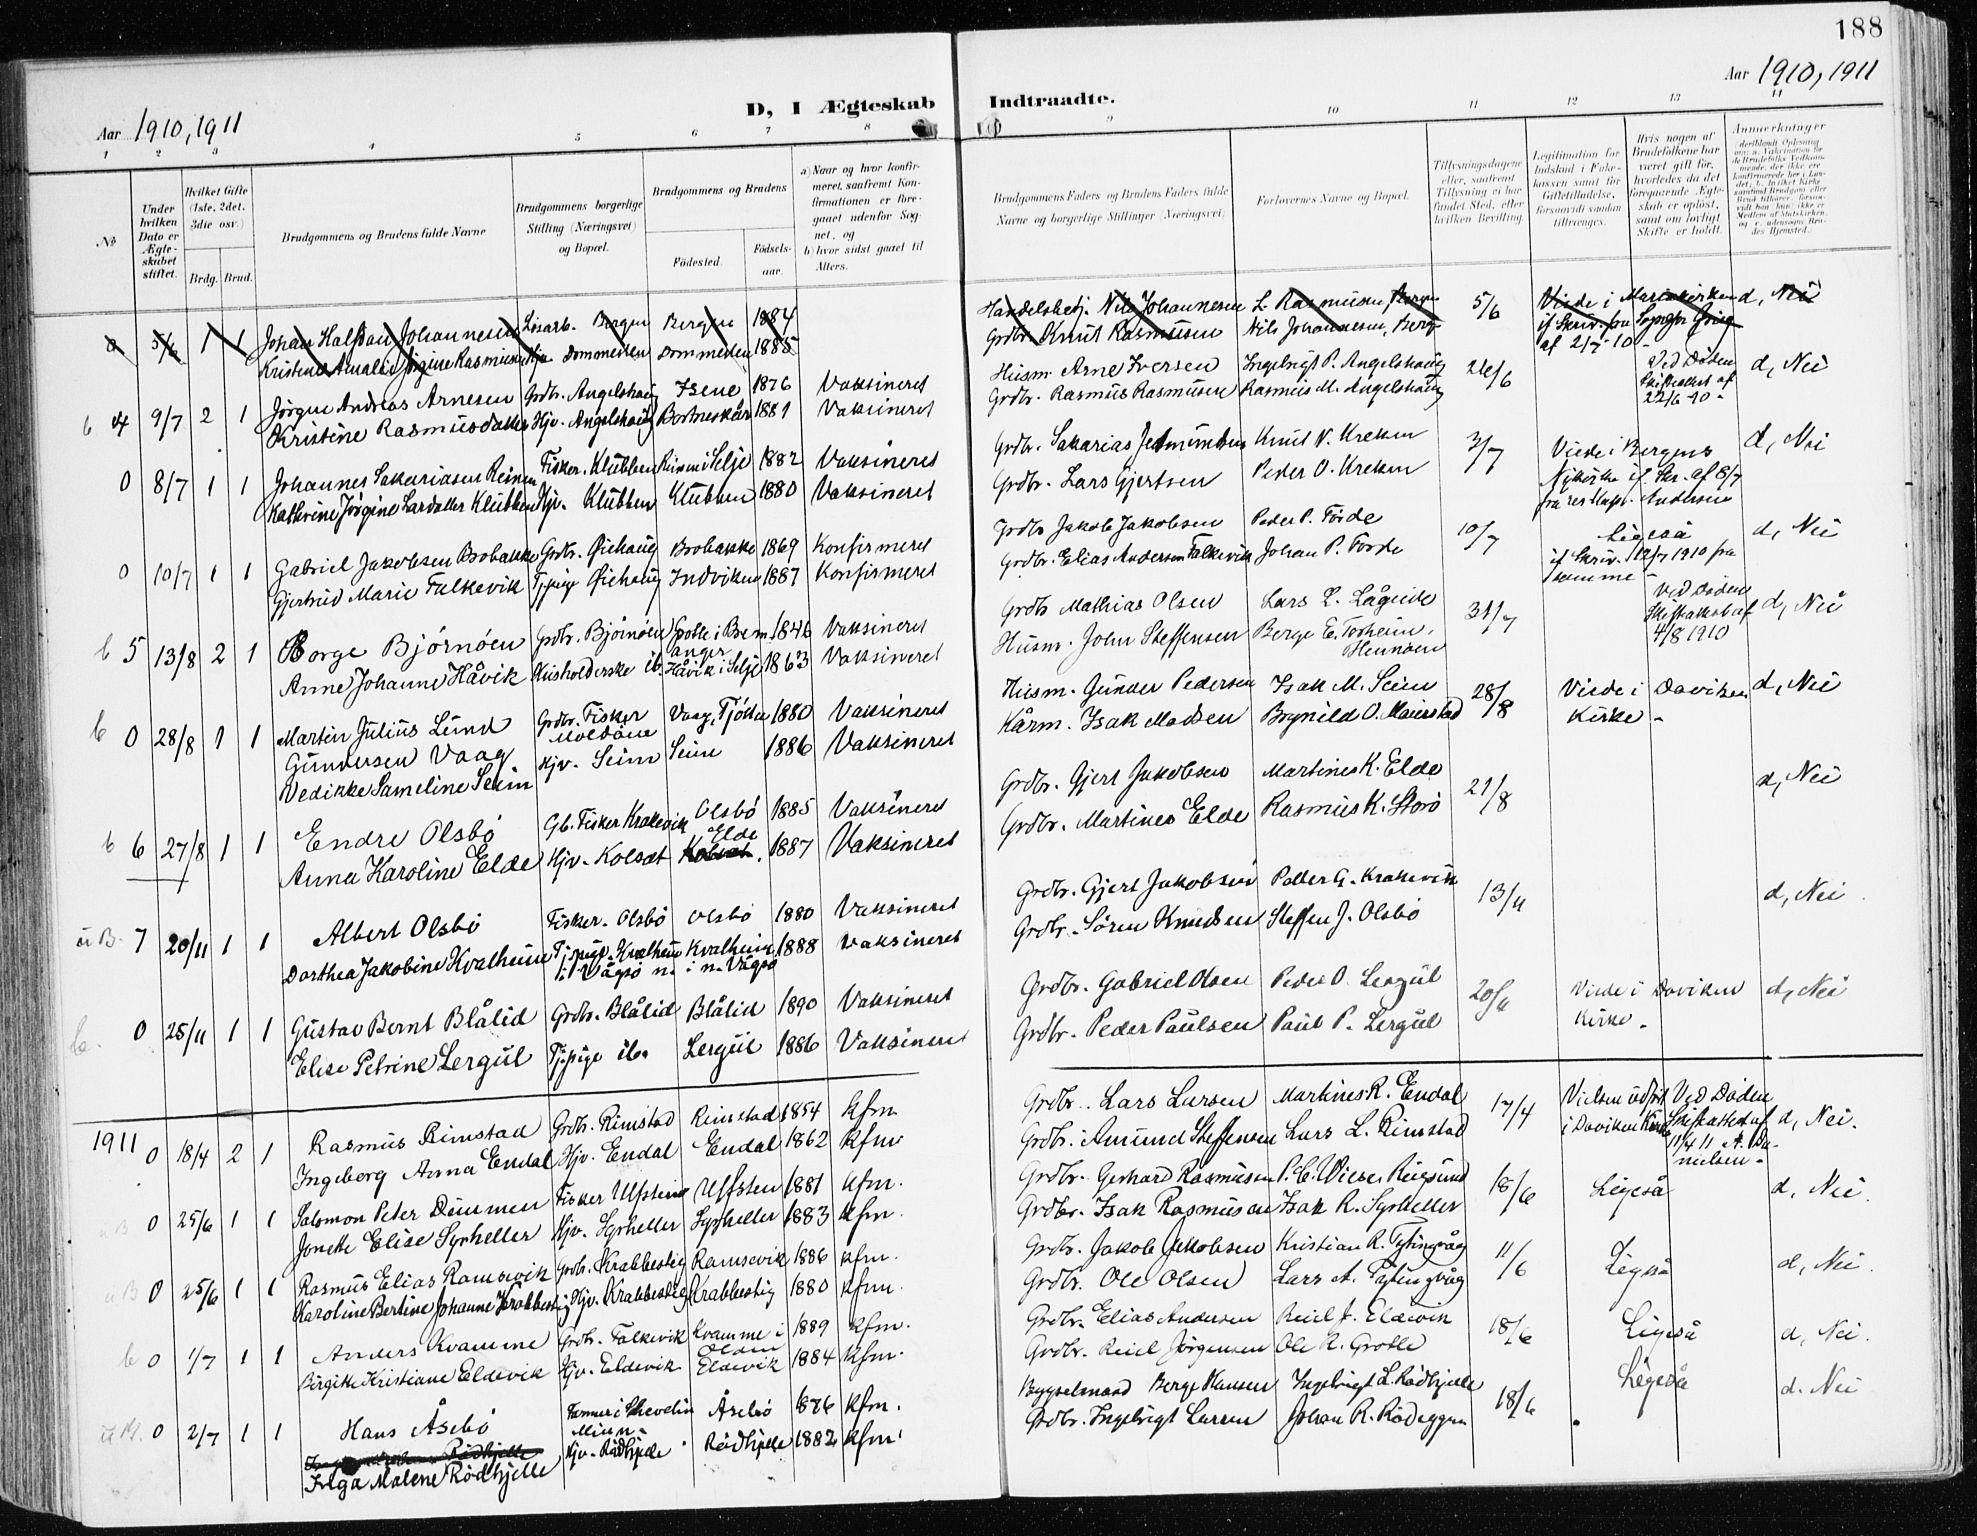 188
Aar 1910, 1911
Aar 1910, 1911
D, I Ægteskab Indtraadte.
1 2 3 4 5 6 7 8 9 10 11 12 13 14
No
Under hvilken Dato er Ægteskabet stiftet.
Hvilket Gifte (1ste, 2det, 3die osv.)
Brdg. Brud.
Brudgommens og Brudens fulde Navne
Brudgommens borgerlige Stilling (Næringsvei) og Bopæl.
Brudgommens og Brudens
Fødested. Fødselsaar.
a) Naar og hvor konfirmeret, saafremt Konfirmationen er foregaaet udenfor Sognet, og b) hvor sidst gaaet til Alters.
Brudgommens Faders og Brudens Faders fulde Navne og borgerlige Stillinger (Næringsvei)
Forlovernes Navne og Bopæl.
Tillysningsdagene eller, saafremt Tillysning ei har fundet Sted, efter hvilken Bevilling.
Hvis nogen af Brudefolkene har været gift før, hvorledes da det foregaaende Ægteskab er opløst, samt om lovligt Skifte er holdt.
Anmærkninger
0 5/6 1 1 Johan Halfdan Johannesen Løsarb. Bergen Bergen 1884 Handelsbetj. Nils Johannesen L. Rasmusen, Bergen 5/6 Viede i Mariakirken d, Nei
Kristine Amalie Jørgine Rasmusen Hjv Dommesten Dommesten 1885 Grdbr. Knut Rasmussen Nils Johannesen, Berg. if Skriv. fra Sogneprs Grieg
af 2/7-10 -
b 4 9/7 2 1 Jørgen Andreas Arnesen Grdbr. Angelshaug Isene 1876 Vaksineret Husm. Arne Iversen Ingebrigt P. Angelshaug 26/6 Ved Døden d, Nei
Kristine Rasmusdatter Hjv. Angelshaug Bortneskår 1881 Vaksineret Grdbr. Rasmus Rasmusen Rasmus M. Angelshaug Skifteattest af
22/6 10 -
0 8/7 1 1 Johannes Sakariasen Reimen Fisker. Klubben Reimen i Selje 1882 Vaksineret Grdbr. Sakarias Jetmundsen Knut N. Kreken 3/7 Viede i Bergens d, Nei
Kathrine Jørgine Larsdatter Klubben Hjv. Klubben Klubben 1880 Vaksineret Grdbr. Lars Gjertsen Peder O. Kreken Nykirke if Skr. af 8/7
fra res Kapl. Andersen
0 10/7 1 1 Gabriel Jakobsen Brobakke Grdbr. Øiehaug Brobakke 1869 Konfirmeret Grdbr Jakob Jakobsen Peder P. Førde 10/7 Ligeså d, Nei
Gjertrud Marie Falkevik Tjpige Øiehaug Indviken 1887 Konfirmeret Grdbr. Elias Andersen Falkevik Johan P. Førde if Skriv. 12/7 1910 fra
samme -
b 5 13/8 2 1 Børge Bjørnøen Grdbr. Bjørnøen Grotle i Bremanger 1846 Vaksineret Grdbr Mathias Olsen Lars L. Lågeide 31/7 Ved Døden d, Nei
Anne Johanne Håvik Husholderske ib. Håvik i Selje 1863 Vaksineret Husm. John Steffensen Berge E. Torheim, Skifteattest af
Hennøen 4/8 1910
b 0 28/8 1 1 Martin Julius Lund Grdbr. Fisker Vaag, Tjøtta 1880 Vaksineret Husm. Gunder Pedersen Isak M. Seim 28/8 Viede i Daviken d, Nei
Gundersen Vaag Moldøen
Vedikke Sameline Seim Hjv. Seim Seim 1886 Vaksineret Kårm. Isak Madsen Brynild O. Maurstad Kirke -
b 6 27/8 1 1 Endre Olsbø Gb. Fisker Krakevik Olsbø 1885 Vaksineret Grdbr. Gjert Jakobsen Martines K. Elde 21/8 d, Nei
Anna Karoline Elde Hjv. Kolset Elde 1887 Vaksineret Grdbr. Martines Elde Rasmus K. Storø
u B. 7 20/11 1 1 Albert Olsbø Fisker. Olsbø Olsbø 1880 Vaksineret Grdbr. Gjert Jakobsen Petter G. Krakevik 13/11 d, Nei
Dorthea Jakobine Kvalheim Tjpige. Kvalheim Kvalheim 1888 Vaksineret Grdbr. Søren Knudsen Steffen J. Olsbø
i Vågsø n. i n. Vågsø
b. 0 25/11 1 1 Gustav Bernt Blålid Grdbr. Blålid Blålid 1890 Vaksineret Grdbr. Gabriel Olsen Peder O. Lergul 20/11 Viede i Daviken d, Nei
Elise Petrine Lergul Tjpige ib. Lergul 1886 Vaksineret Grdbr. Peder Paulsen Paul P. Lergul Kirke.
1911 0 18/4 2 1 Rasmus Rimstad Grdbr. Rimstad Rimstad 1854 kfm Grdbr. Lars Larsen Martines R. Endal 17/4 Vielsen udført Ved Døden d, Nei.
Ingeborg Anna Endal Hjv. Endal Endal 1862 kfm Grdbr. Amund Steffensen Lars L. Rimstad i Daviken Kirke Skifteattest af
11/4 11 A. Danielsen -
B 0 25/6 1 1 Salomon Peter Dommen Fisker Ulfsten Ulfsten 1881 kfm. Grdbr. Gerhard Rasmusen P. C. Wiese, Rugsund 18/6 Ligeså d, Nei.
Jonette Elise Syrheller Hjv. Syrheller Syrheller 1883 kfm. Grdbr. Isak Rasmusen Isak R. Syrheller
u B 0 25/6 1 1 Rasmus Elias Ramsevik Grdbr. Krabbestig Ramsevik 1886 kfm. Grdbr. Jakob Jakobsen Kristian R. Tytingvåg 11/6 Ligeså d, Nei.
Karoline Bertine Johanne Krabbestig Hjv. Krabbestig Krabbestig 1880 kfm. Grdbr. Ole Olsen Lars A. Tytingvåg
b 0 1/7 1 1 Anders Kvamme Grdbr. Falkevik Kvamme i Olden 1889 kfm. Grdbr. Elias Andersen Reiel J. Eldevik 18/6 Ligeså d, Nei.
Birgitte Kristiane Eldevik Hjv. Eldevik Eldevik 1884 kfm. Grdbr. Reiel Jørgensen Ole R. Grotle
u M. 0 2/7 1 1 Hans Åsebø Farmer i Åsebø 1876 kfm. Bygselmand Berge Hansen Ingebrigt L. Rødhjelle 18/6 Ligeså d. Nei
Minn.
Inga Malene Rødhjelle Hjv. Rødhjelle Rødhjelle 1882 kfm. Grdbr. Ingebrigt Larsen Johan R. Rødeggen